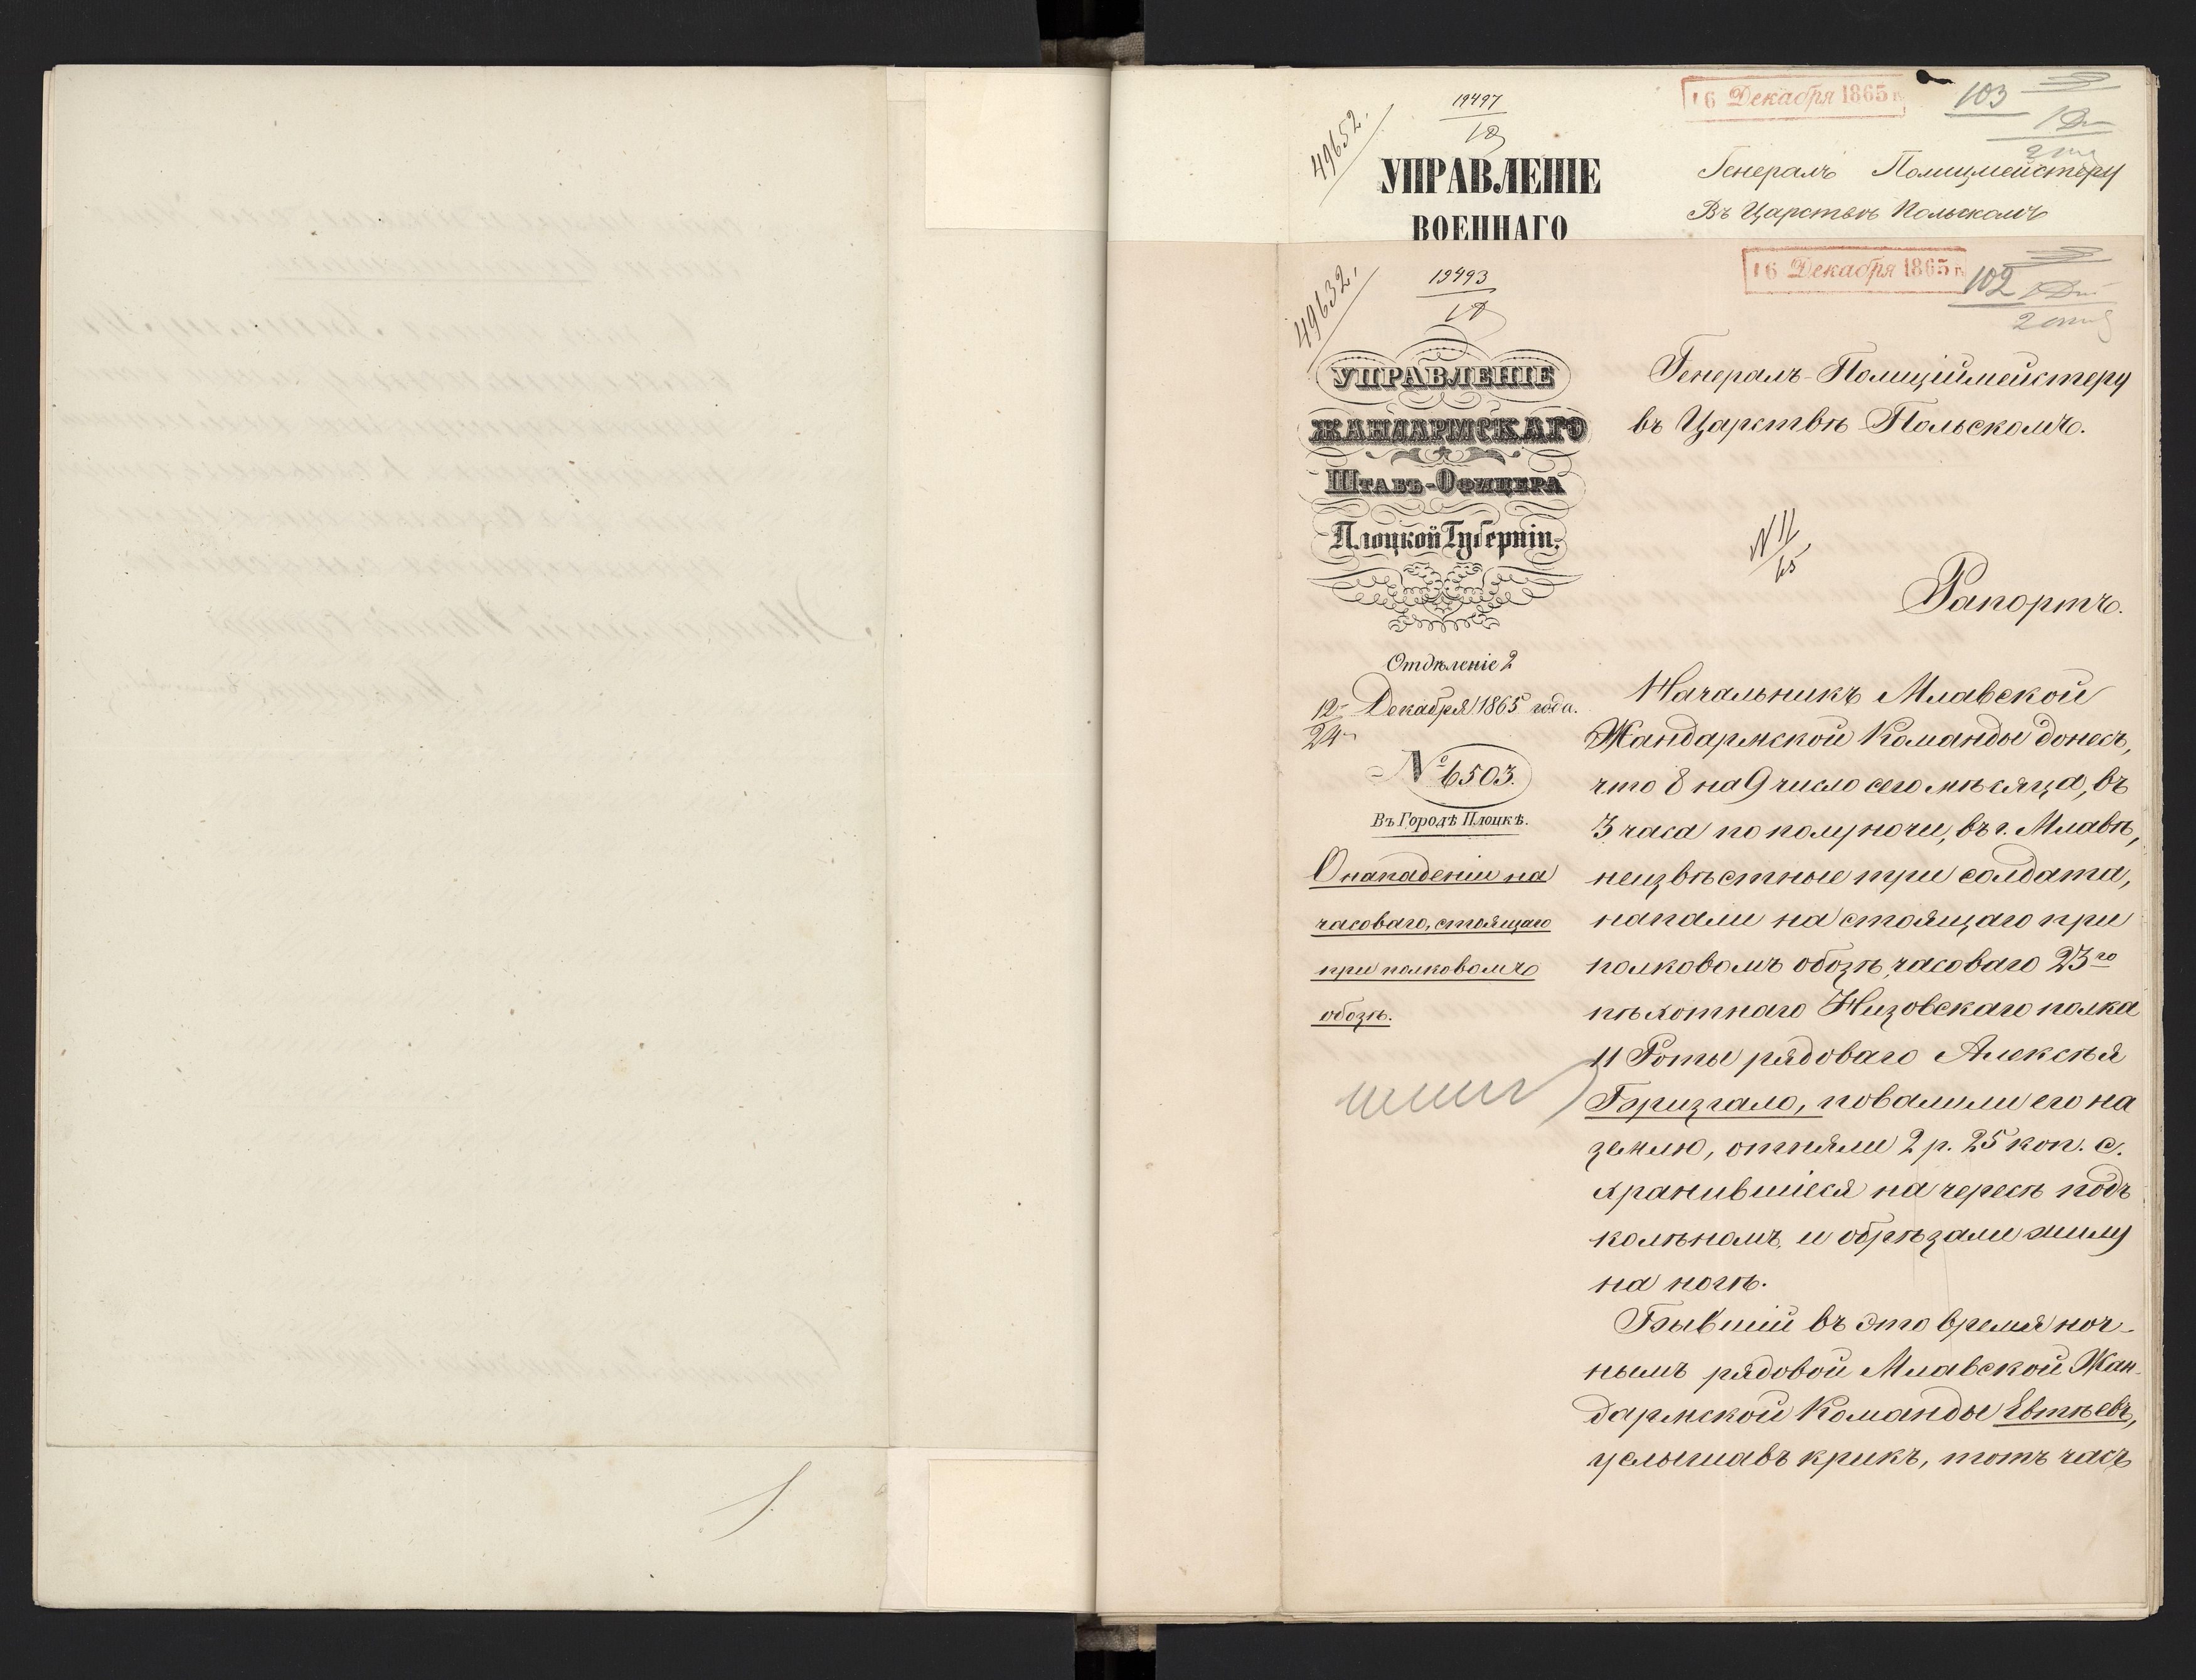 49652.
19497
16 Декабря 1865 г.
103
УПРАВЛЕНІЕ
ВОЕННАГО
Генералъ Полицмейстеру
Въ Царствѣ Польскомъ
16 Декабря 1865 г.
102
49632.
19493
УПРАВЛЕНІЕ
ЖАНДАРМСКАГО
ШТАБЪ-ОФИЦЕРА
Плоцкой Губерніи.
Отдѣленіе 2
12 Декабря 1865 года.
24
№ 6503.
Въ Городѣ Плоцкѣ.
О нападеніи на
часоваго, стоящаго
при полковомъ
обозѣ.
Генералъ-Полиціймейстеру
въ Царствѣ Польскомъ.
Рапортъ.
Начальникъ Млавской
Жандармской Команды донесъ,
что 8 на 9 число сего мѣсяца, въ
3 часа по полуночи, въ г. Млавѣ,
неизвѣстные три солдата,
напали на стоящаго при
полковомъ обозѣ, часоваго 23го
пѣхотнаго Низовскаго полка
11 Роты рядоваго Алексѣя
Бризгало, повалили его на
землю, отняли 2 р. 25 коп. с.
хранившіеся на чересѣ подъ
колѣномъ, и обрѣзали жилу
на ногѣ.
Бывшій въ это время ноч-
нымъ рядовой Млавской Жан-
дармской Команды Евтѣевъ,
услышавъ крикъ, тотъ часъ